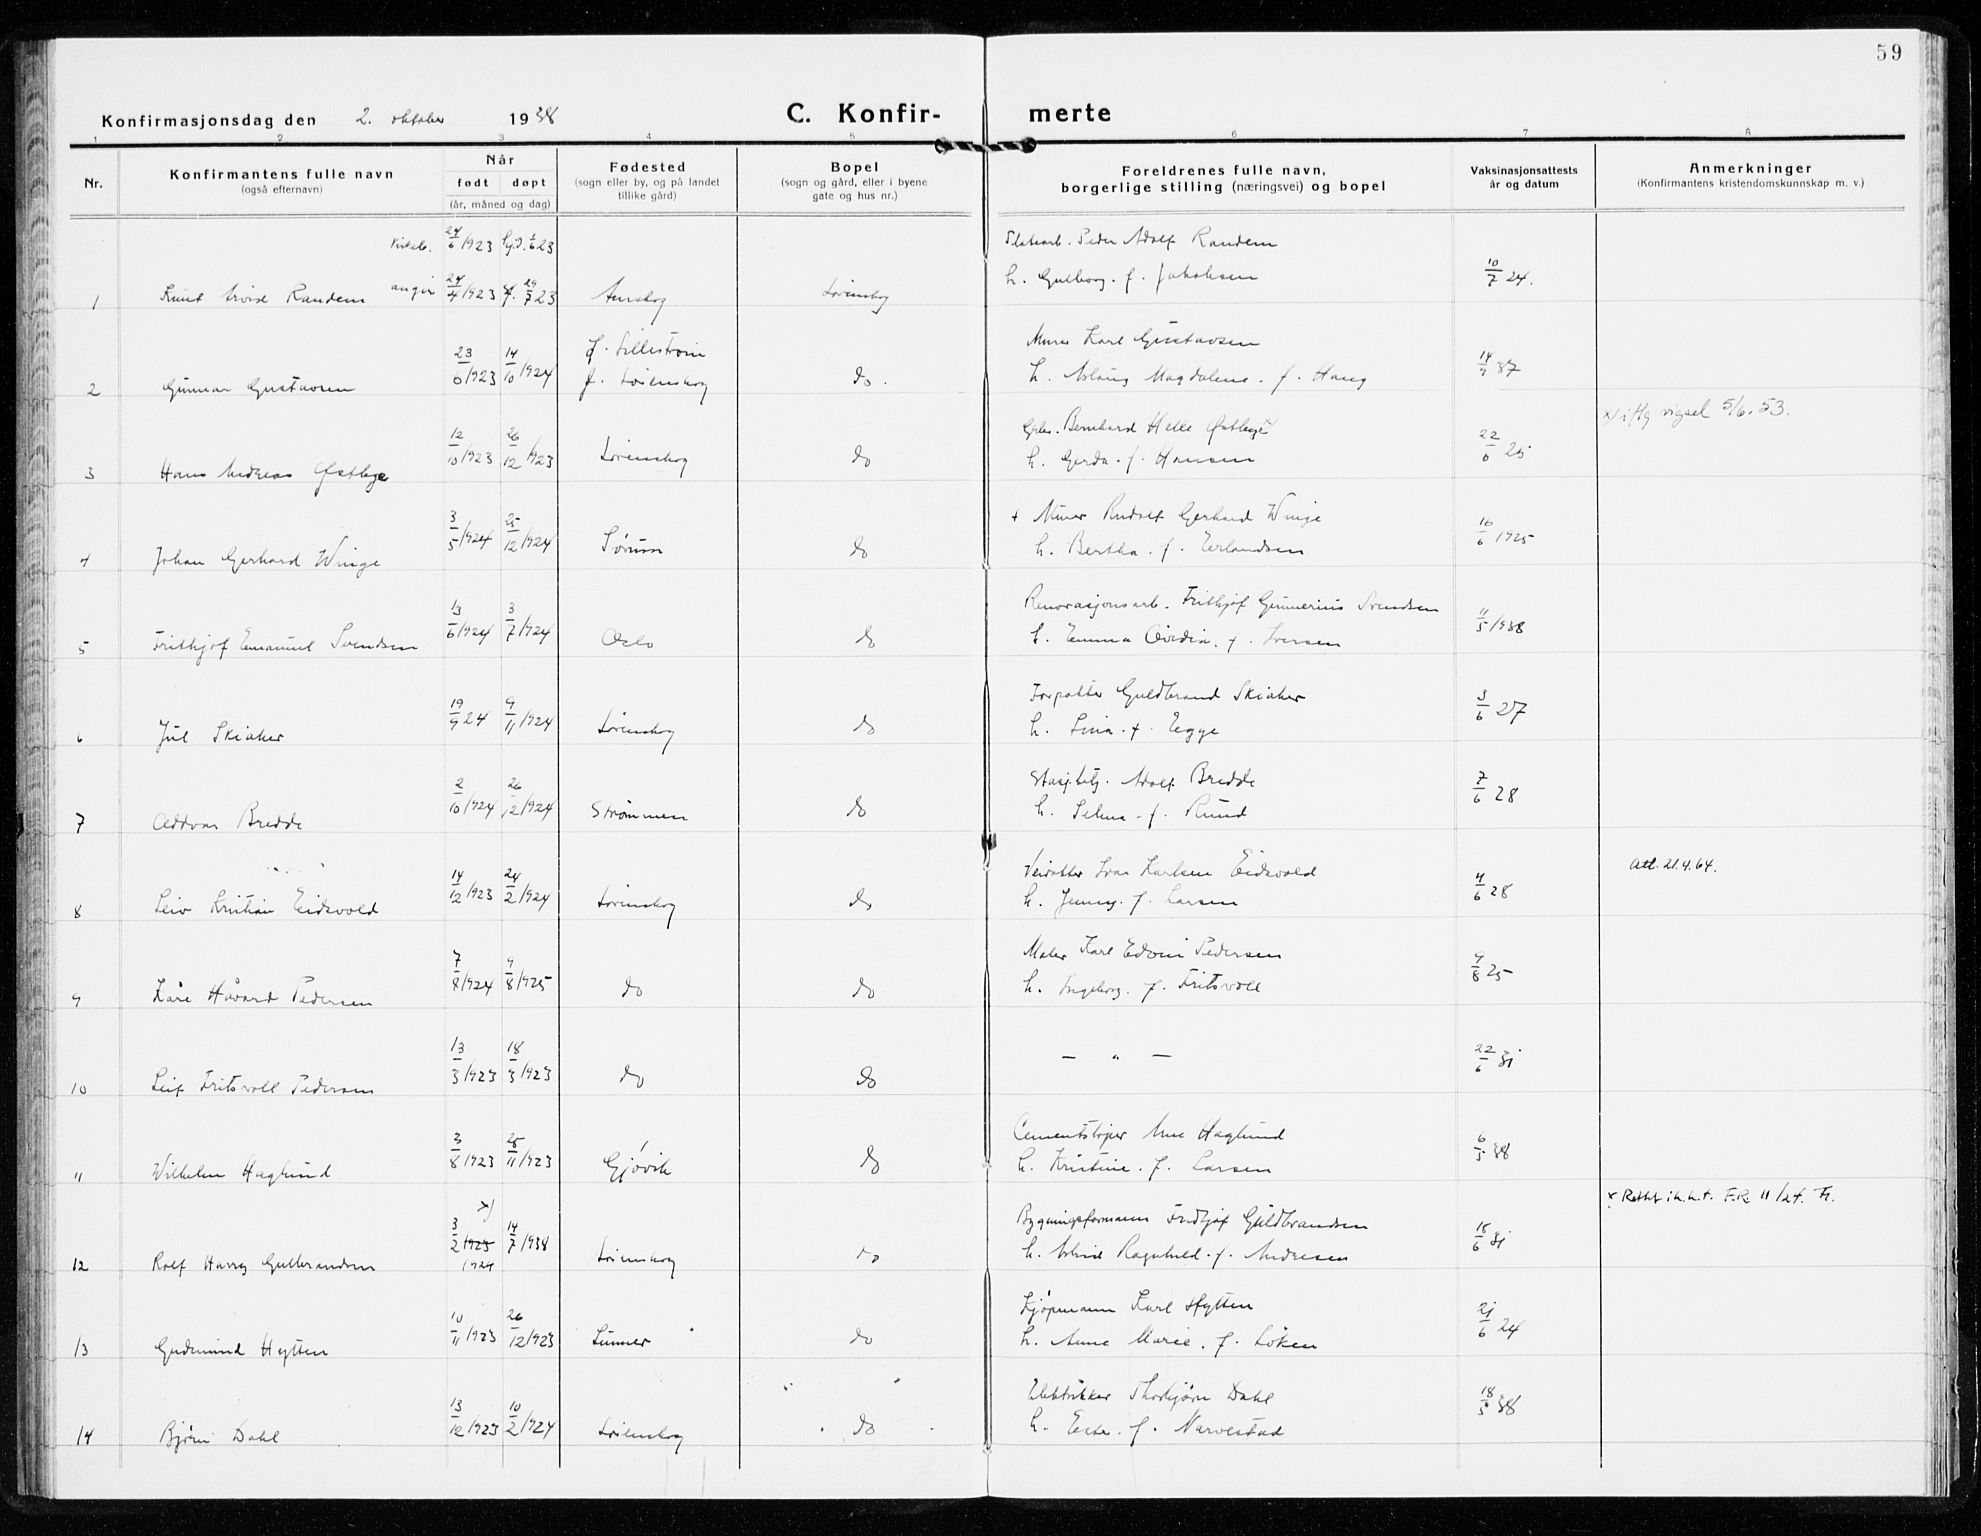 59
Konfirmasjonsdag den 2. oktober 1938
C. Konfir- merte
1 2 3 4 5 6 7 8
Nr.
Konfirmantens fulle navn
(også efternavn)
Når
født døpt
(år, måned og dag)
Fødested
(sogn eller by, og på landet
tillike gård)
Bopel
(sogn og gård, eller i byene
gate og hus nr.)
Foreldrenes fulle navn,
borgerlige stilling (næringsvei) og bopel
Vaksinasjonsattests
år og datum
Anmerkninger
(Konfirmantens kristendomskunnskap m. v.)
Kirkeb. 24/6 1923
Peder Adolf Randem
1 Knut Arvid Randem angir 24/4 1923 29/7 23 Aurskog Lørenskog
h. Gulborg. f. Jakobsen 10/7 24.
f. Lillestrøm
Murer Karl Gustavsen
2 Gunnar Gustavsen 23/6 1923 14/10 1924 f. Lørenskog do.
h. Aslaug Magdalene. f. Haug 14/9 37
Bernhard Helle Østbye
x) vigsel 5/6. 53.
3 Hans Andreas Østbye 12/10 1923 26/12 1923 Lørenskog do
h. Gerda. f. Hansen 22/6 25
+ Murer Rudolf Gerhard Winge
4 Johan Gerhard Winge 3/5 1924 25/12 1924 Sørum do
h. Bertha. f. Erlandsen 16/6 1925
Renovasjonsarb. Frithjof Gunnerius Svendsen
5 Frithjof Emanuel Svendsen 13/6 1924 3/7 1924 Oslo do
h. Emma Ovidia. f. Iversen 11/5 1938
Forpakter Guldbrand Skiaker
6 Jul Skiaker 19/9 24 9/11 1924 Lørenskog do
h. Lina. f. Egge 3/6 27
Stasj.betj. Adolf Bredde
7 Oddvar Bredde 2/10 1924 26/12 1924 Strømmen do
h. Selma. f. Rund 7/6 28
Veivokter Ivar Karlsen Eidsvold
Att. 21.4.64.
8 Leiv Kristian Eidsvold 14/12 1923 24/2 1924 Lørenskog do
h. Jenny. f. Larsen 4/6 28
Maler Karl Edvin Pedersen
9 Kåre Håvard Pedersen 7/8 1924 9/8 1925 do do
h. Ingeborg. f. Fritsvoll 9/8 25
— " —
10 Leif Fritsvoll Pedersen 13/3 1923 18/3 1923 do do
22/6 31
Cementstøper Arne Haglund
11 Wilhelm Haglund 3/8 1923 25/11 1923 Gjøvik do
h. Kristine. f. Larsen 6/5 38
x)
x Rettet i h.h.t. F.R. 11/24. Fr.
Bygningsformann Fridtjof Guldbrandsen
12 Rolf Harry Gulbrandsen 3/2 1923 1924 14/7 1938 Lørenskog do
h. Astrid Ragnhild. f. Andresen 15/6 31
Kjøpmann Karl Hytten
13 Gudmund Hytten 10/11 1923 26/12 1923 Lunner do
h. Anne Marie. f. Løken 21/6 24
Elektriker Thorbjørn Dahl
14 Bjørn Dahl 13/12 1923 10/2 1924 Lørenskog do
h. Ester. f. Narvestad 18/5 38